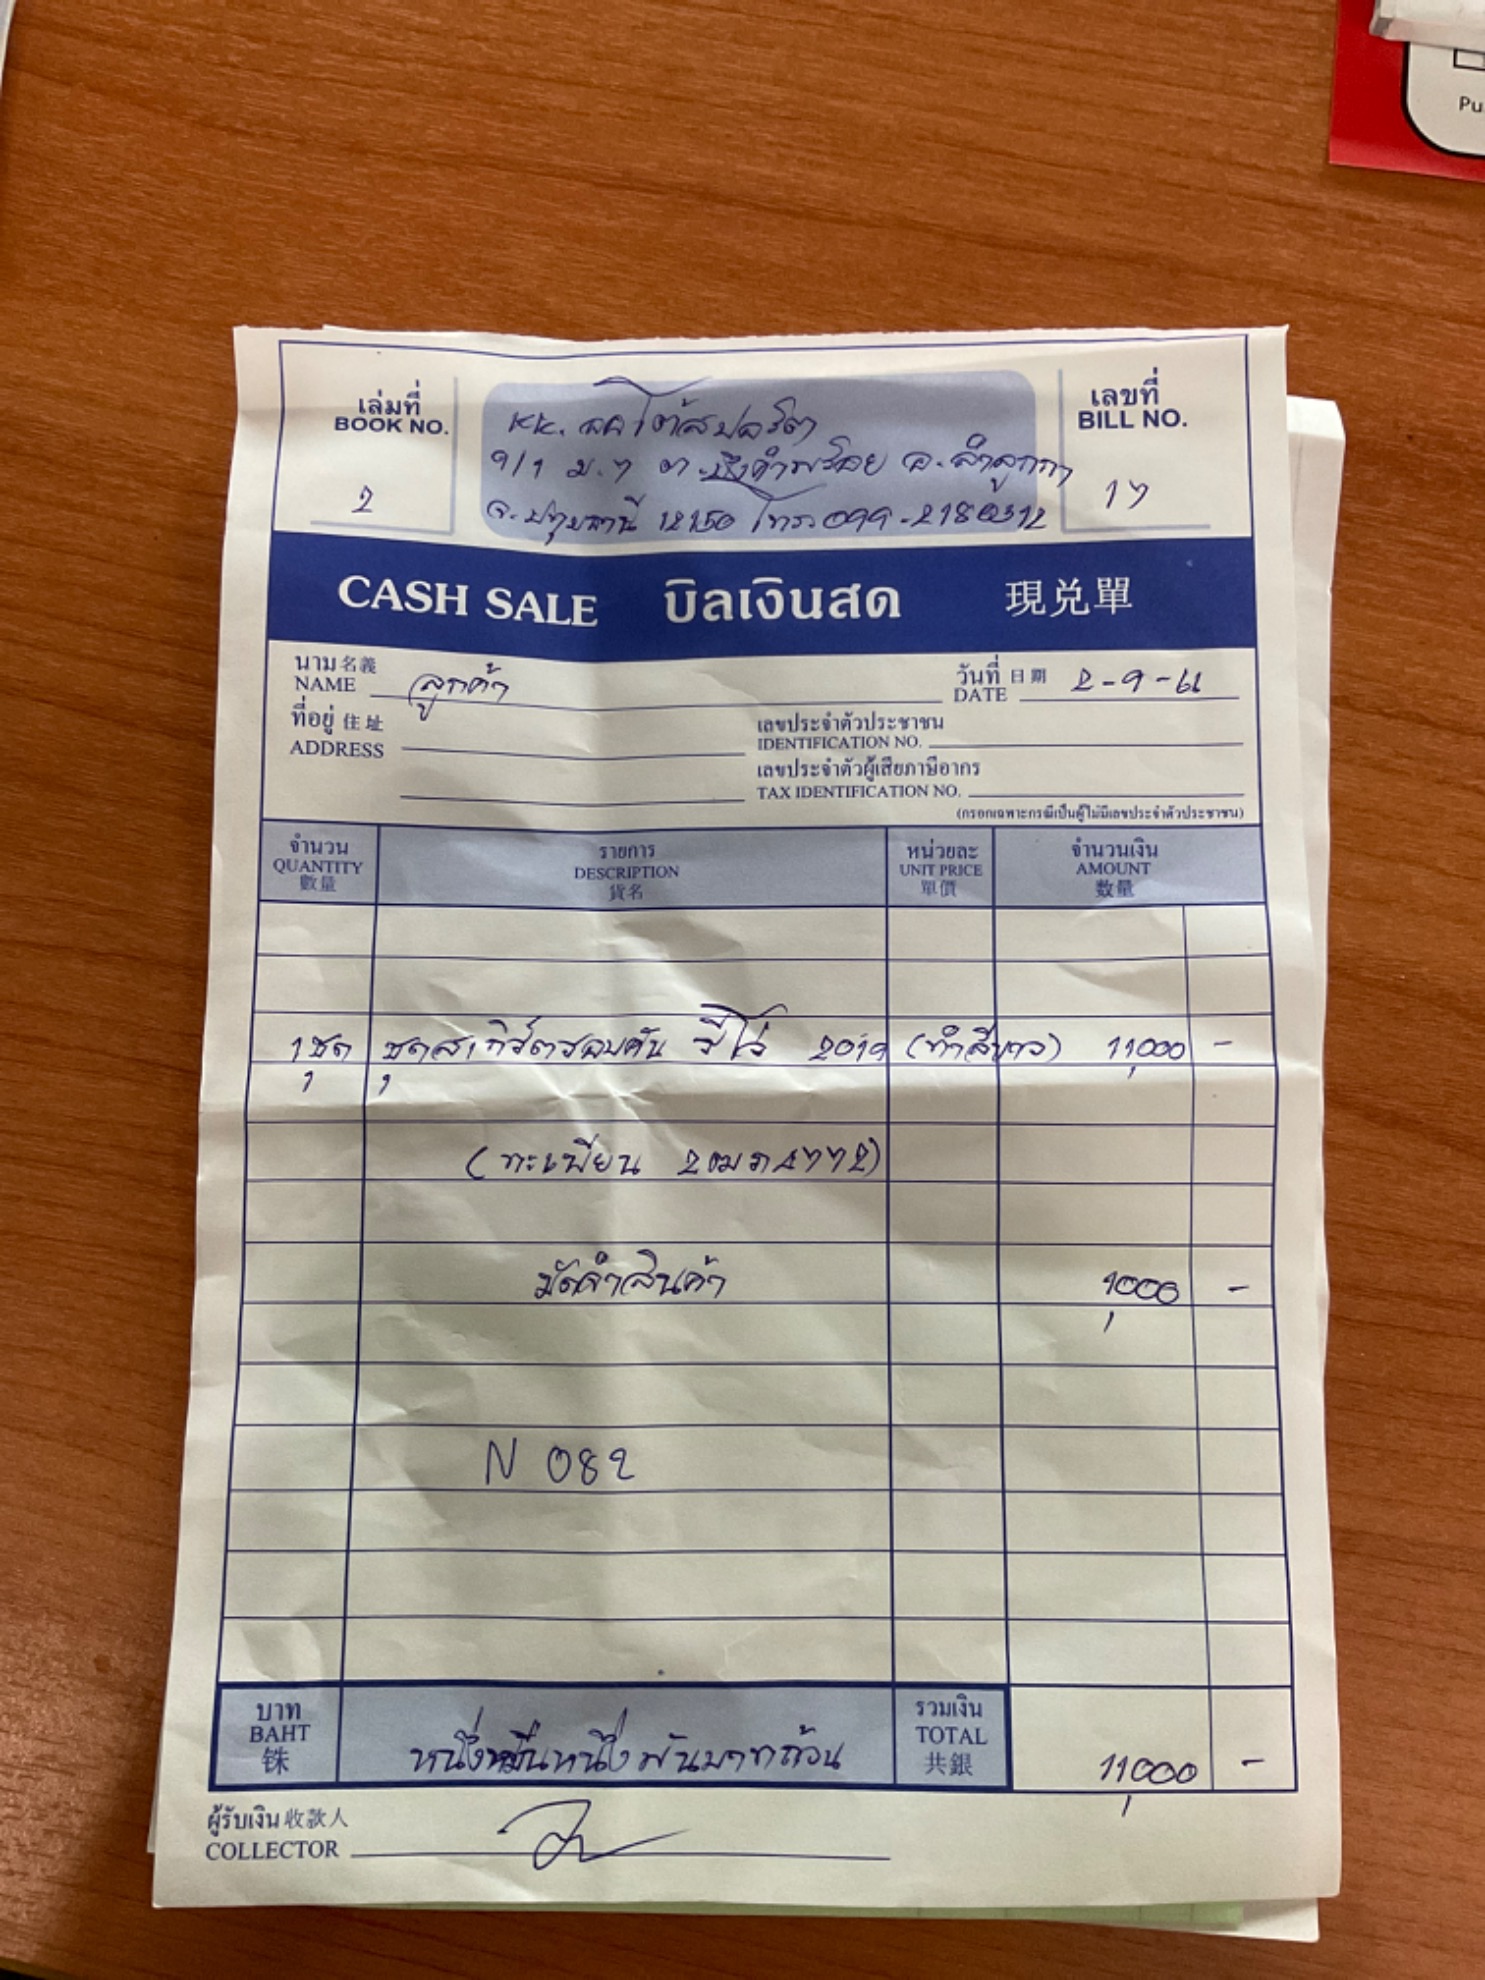 Pu
เล่มที่
BOOK NO.
2
KK. ออโต้สปอร์ต
9/1 ม.7 ต.บึงคำพร้อย อ.ลำลูกกา
จ.ปทุมธานี 12150 โทร.099-2180312
เลขที่
BILL NO.
17
CASH SALE บิลเงินสด 現兌單
นาม 名義
NAME ลูกค้า
วันที่ 日期
DATE 2-9-61
ที่อยู่ 住址
ADDRESS
เลขประจำตัวประชาชน
IDENTIFICATION NO.
เลขประจำตัวผู้เสียภาษีอากร
TAX IDENTIFICATION NO.
(กรอกเฉพาะกรณีเป็นผู้ไม่มีเลขประจำตัวประชาชน)
จำนวน รายการ หน่วยละ จำนวนเงิน
QUANTITY DESCRIPTION UNIT PRICE AMOUNT
數量 貨名 單價 数量
1 ชุด ชุดสเกิร์ตรอบคัน รีโว่ 2019 (ทำสีขาว) 11,000 -
(ทะเบียน 2ฒภ4772)
มัดจำสินค้า 1,000 -
N 082
บาท
BAHT
铢
หนึ่งหมื่นหนึ่งพันบาทถ้วน
รวมเงิน
TOTAL
共銀
11,000 -
ผู้รับเงิน 收款人
COLLECTOR